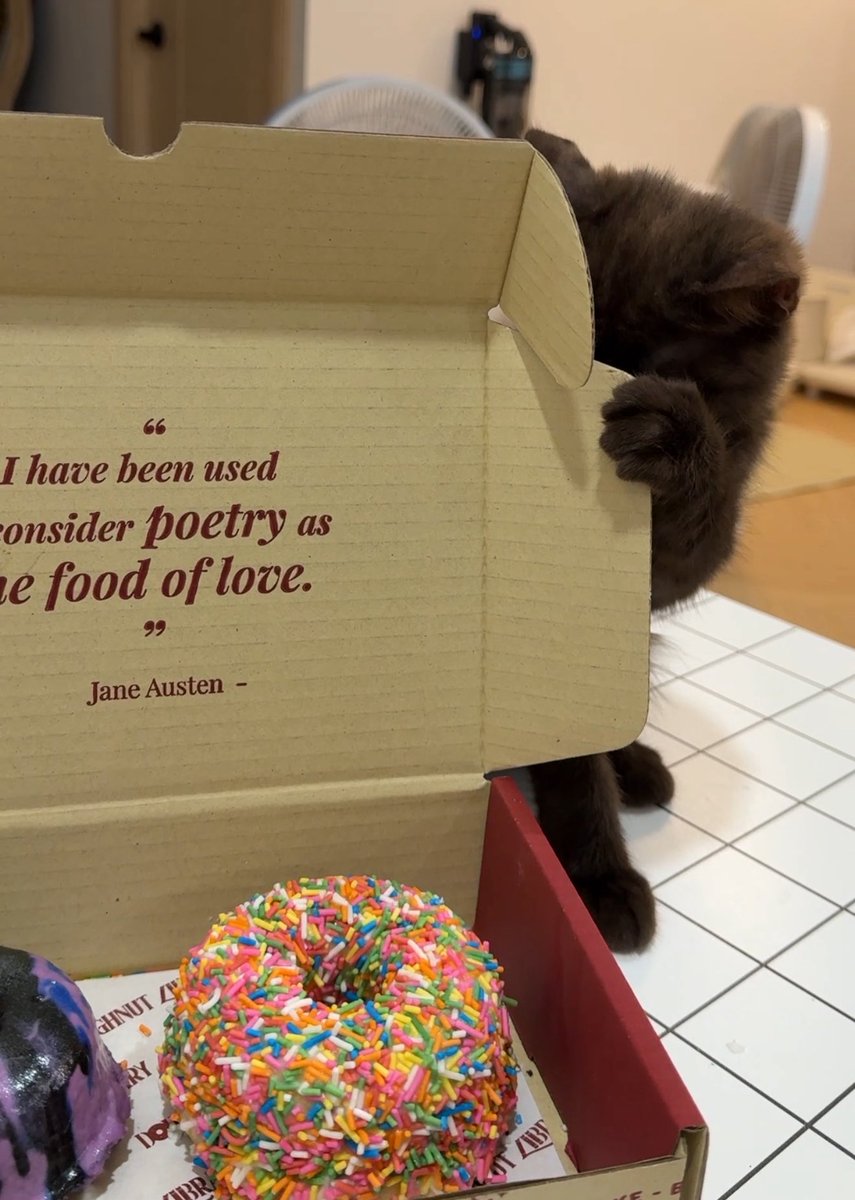 “
I have been used
consider poetry as
he food of love.
”
Jane Austen -
GHNUT